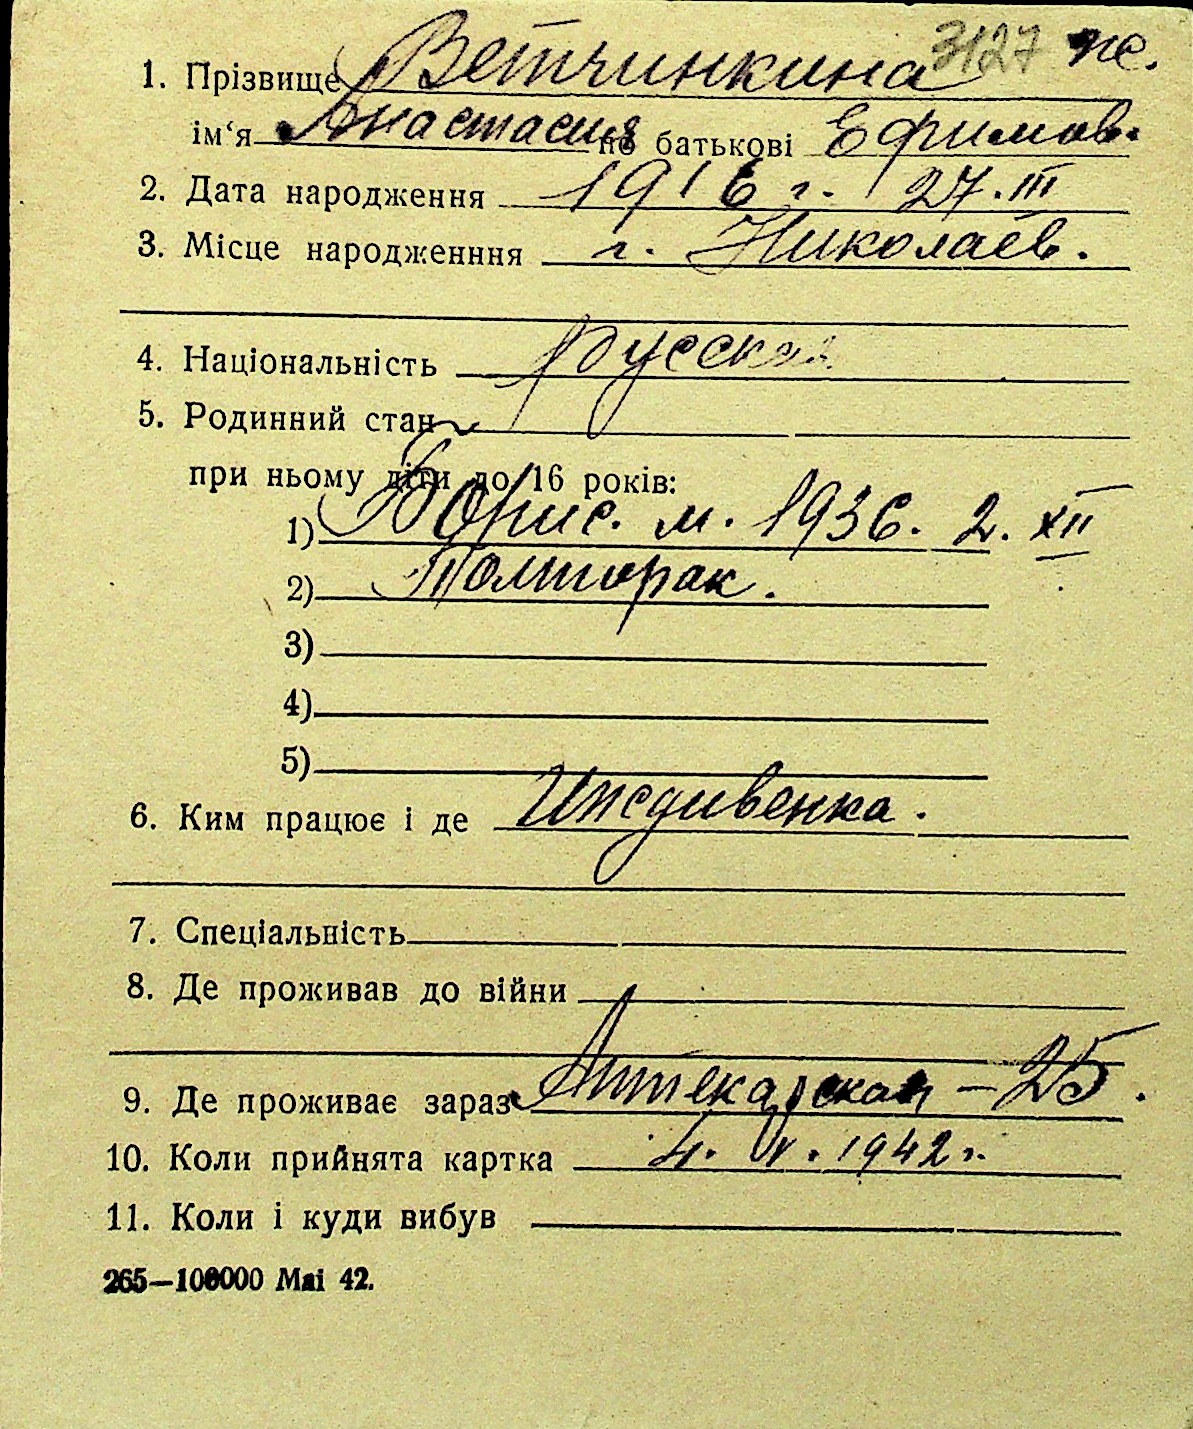 3127 ж.
1. Прізвище Ветчинкина
ім‘я Анастасия по батькові Ефимов.
2. Дата народження 1916 г. 27.III
3. Місце народженння г. Николаев.
4. Національність Русская
5. Родинний стан
при ньому діти до 16 років:
1) Борис. м. 1936. 2. XII
2) Толторак.
3)
4)
5)
6. Ким працює і де Иждивенка.
7. Спеціальність
8. Де проживав до війни
9. Де проживає зараз Аптекарская – 25.
10. Коли прийнята картка 4. V. 1942 г.
11. Коли і куди вибув
265—100000 Mai 42.